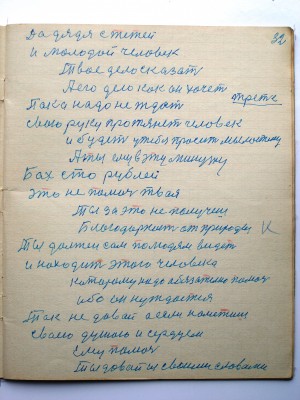 32
Да дядя с тетей
и молодой человек
Твое дело сказат
А его дело как он хочет
Пока надо не ждат
трете
Свою руку протянет человек
и будет у тебя просит мылостину
А ты ему в эту минуту
Бах сто рублей
Это не помоч твая
Ты за это не получеш
Благодарност от природы К
Ты должен сам по людям видет
и находит этого человека
Каторому надо обязательно помоч
ибо он нуждается
Так не давай а сам
своею душою и сердцем
ему помоч
Ты давай и своими словами